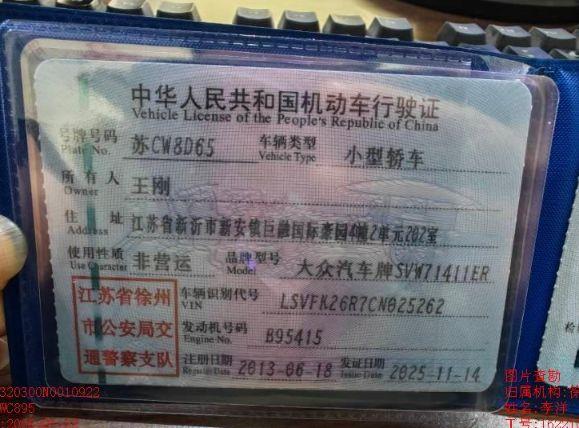 中华人民共和国机动车行驶证
Vehicle License of the People's Republic of China
号牌号码 Plate No. 苏CW8D65 车辆类型 Vehicle Type 小型轿车
所有人 Owner 王刚
住址 Address 江苏省新沂市新安镇巨融国际豪园4幢2单元202室
使用性质 Use Character 非营运 品牌型号 Model 大众汽车牌SVW71411ER
江苏省徐州市公安局交通警察支队
车辆识别代号 VIN LSVFK26R7CN025262
发动机号码 Engine No. B95415
注册日期 Register Date 2013-06-18 发证日期 Issue Date 2025-11-14
图片查勘
320300N0010922 归属机构:
WC895 姓名:李洋
工号: